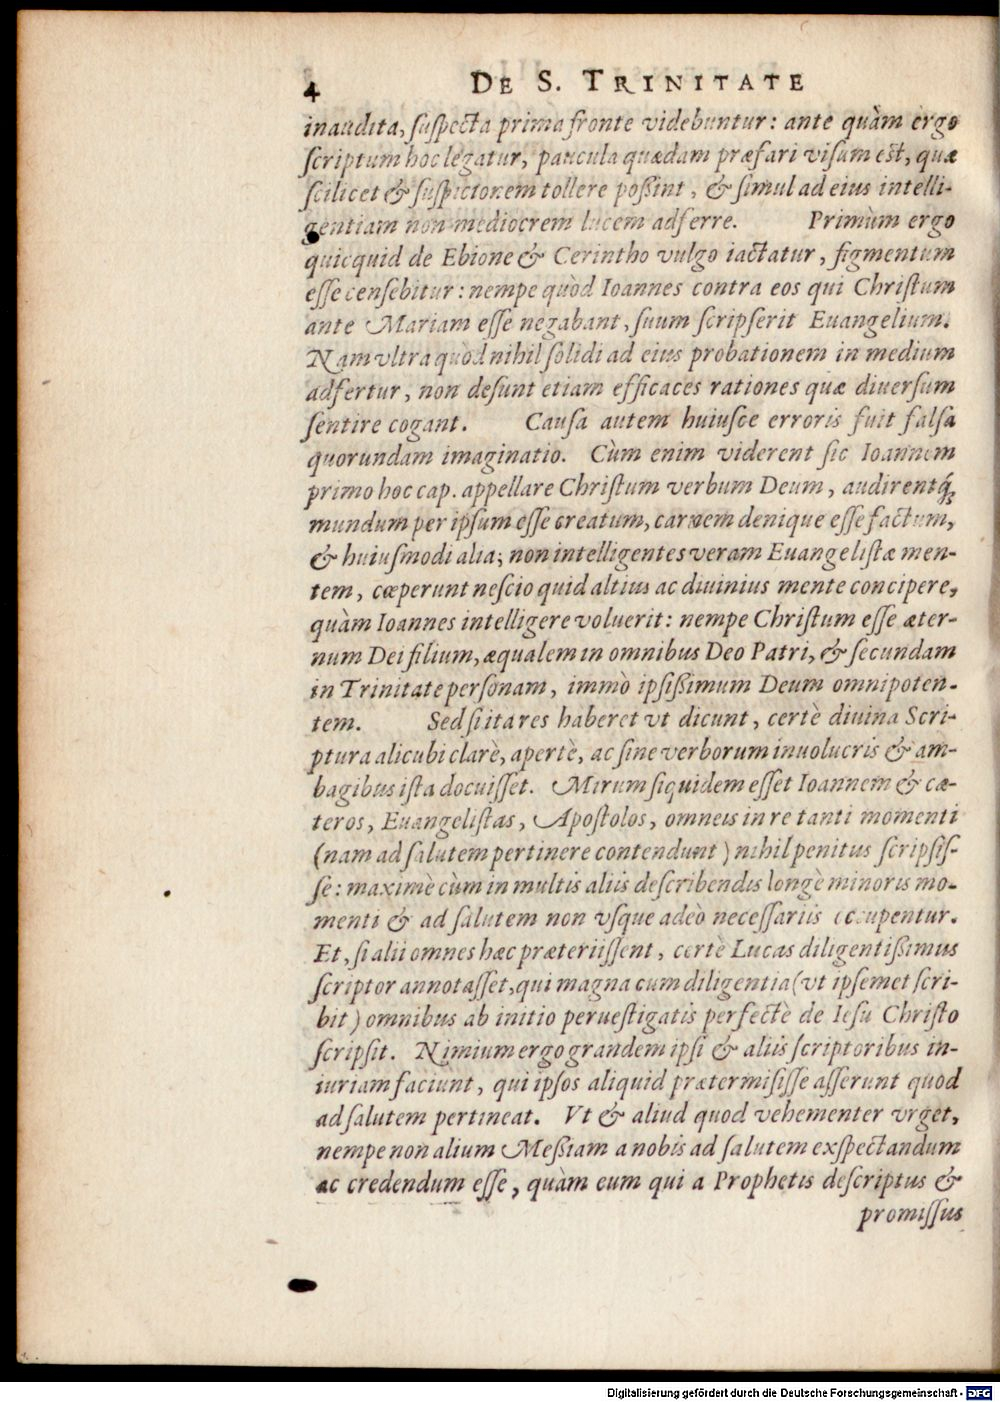 4 DE S. TRINITATE
inaudita, ſuſpecta prima fronte videbuntur: ante quàm ergo
ſcriptum hoc legatur, paucula quædam præfari viſum eſt, quæ
ſcilicet & ſuſpicionem tollere poſſint, & ſimul ad eius intelli-
gentiam non mediocrem lucem adferre. Primùm ergo
quicquid de Ebione & Cerintho vulgo iactatur, figmentum
eſſe cenſebitur: nempe quòd Ioannes contra eos qui Chriſtum
ante Mariam eſſe negabant, ſuum ſcripſerit Euangelium.
Nam vltra quòd nihil ſolidi ad eius probationem in medium
adfertur, non deſunt etiam efficaces rationes quæ diuerſum
ſentire cogant. Cauſa autem huiuſce erroris fuit falſa
quorundam imaginatio. Cùm enim viderent ſic Ioannem
primo hoc cap. appellare Chriſtum verbum Deum, audirentq́;
mundum per ipſum eſſe creatum, carnem denique eſſe factum,
& huiuſmodi alia; non intelligentes veram Euangeliſtæ men-
tem, cœperunt neſcio quid altius ac diuinius mente concipere,
quàm Ioannes intelligere voluerit: nempe Chriſtum eſſe æter-
num Dei filium, æqualem in omnibus Deo Patri, & ſecundam
in Trinitate perſonam, immò ipſiſſimum Deum omnipoten-
tem. Sed ſi ita res haberet vt dicunt, certè diuina Scri-
ptura alicubi clarè, apertè, ac ſine verborum inuolucris & am-
bagibus iſta docuiſſet. Mirum ſiquidem eſſet Ioannem & cæ-
teros, Euangeliſtas, Apoſtolos, omneis in re tanti momenti
(nam ad ſalutem pertinere contendunt) nihil penitus ſcripſiſ-
ſe: maximè cùm in multis aliis deſcribendis longè minoris mo-
menti & ad ſalutem non vſque adeò neceſſariis occupentur.
Et, ſi alii omnes hæc præteriiſſent, certè Lucas diligentiſſimus
ſcriptor annotaſſet, qui magna cum diligentia (vt ipſemet ſcri-
bit) omnibus ab initio perueſtigatis perfectè de Ieſu Chriſto
ſcripſit. Nimium ergo grandem ipſi & aliis ſcriptoribus in-
iuriam faciunt, qui ipſos aliquid prætermiſiſſe aſſerunt quod
ad ſalutem pertineat. Vt & aliud quod vehementer vrget,
nempe non alium Meſſiam a nobis ad ſalutem exſpectandum
ac credendum eſſe, quàm eum qui a Prophetis deſcriptus &
promiſſus
Digitalisierung gefördert durch die Deutsche Forschungsgemeinschaft - DFG